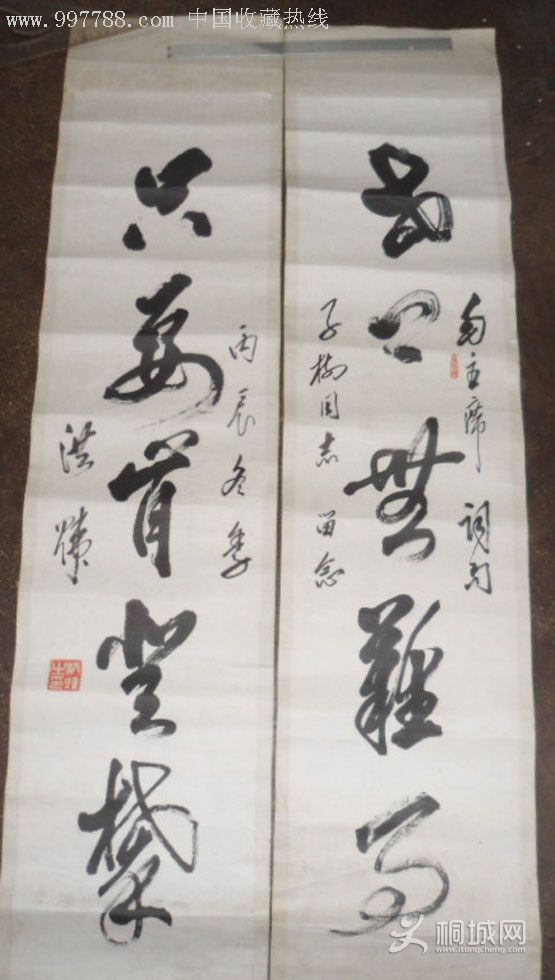 www.997788.com 中国收藏热线
世上無難事
毛主席词句
子樹同志 留念
只要肯登攀
丙辰冬季
洪
桐城网
www.itongcheng.com